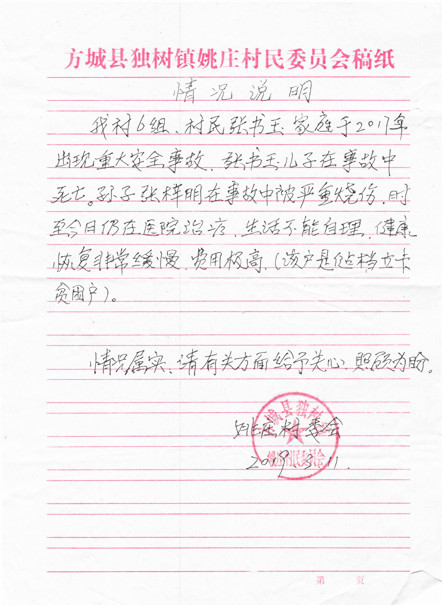 方城县独树镇姚庄村民委员会稿纸
情况说明
我村6组、村民张书玉家庭于2017年
出现重大安全事故，张书玉儿子在事故中
死亡。孙子张梓明在事故中被严重烧伤，时
至今日仍在医院治疗，生活不能自理，健康
恢复非常缓慢，费用极高，（该户是建档立卡
贫困户）。
情况属实，请有关方面给予关心，照顾为盼。
姚庄村委会
2019.3.11.
城县独树
第 页